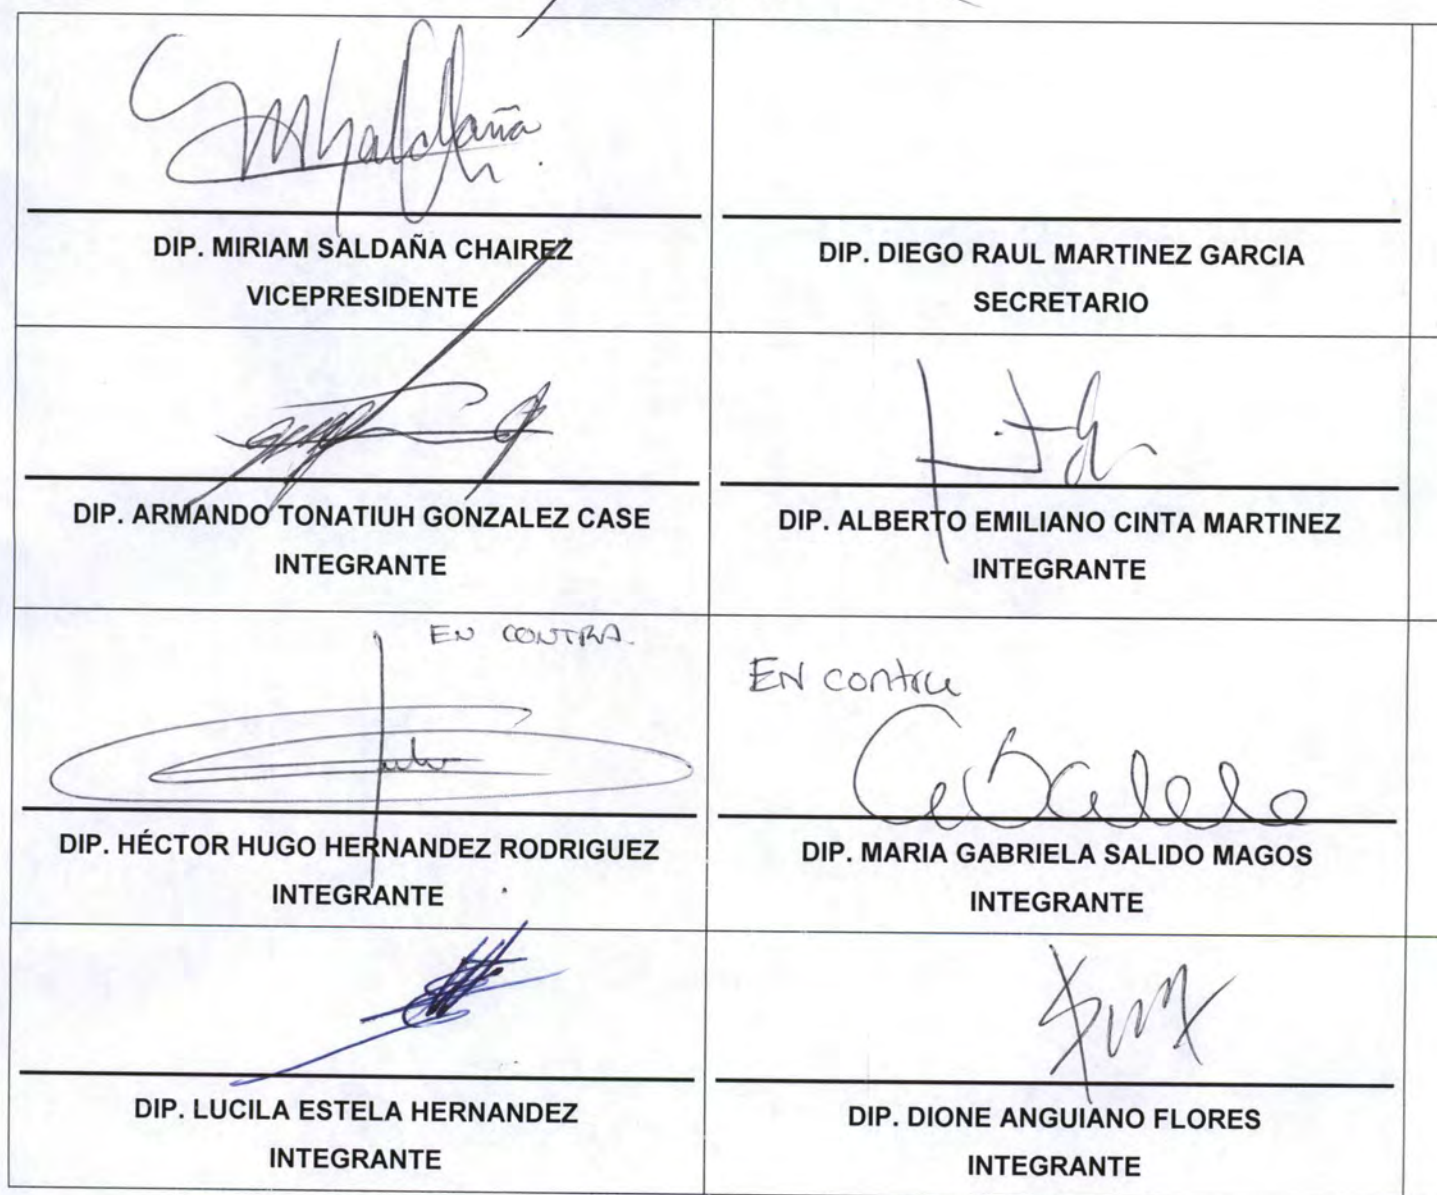 DIP. MIRIAM SALDAÑA CHAIREZ
VICEPRESIDENTE
DIP. DIEGO RAUL MARTINEZ GARCIA
SECRETARIO
DIP. ARMANDO TONATIUH GONZALEZ CASE
INTEGRANTE
DIP. ALBERTO EMILIANO CINTA MARTINEZ
INTEGRANTE
EN CONTRA.
DIP. HÉCTOR HUGO HERNANDEZ RODRIGUEZ
INTEGRANTE
EN contra
DIP. MARIA GABRIELA SALIDO MAGOS
INTEGRANTE
DIP. LUCILA ESTELA HERNANDEZ
INTEGRANTE
DIP. DIONE ANGUIANO FLORES
INTEGRANTE